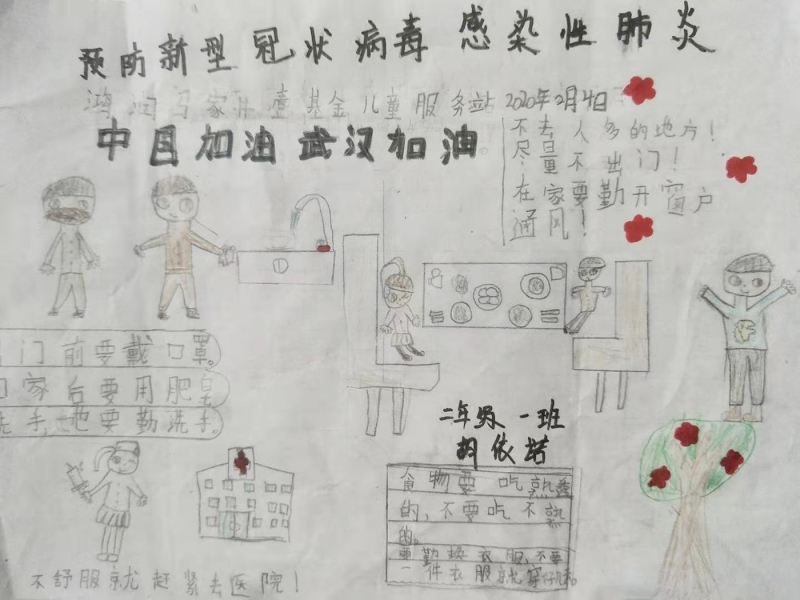 预防新型冠状病毒感染性肺炎
鸿润马家 壹基金儿童服务站 2020年2月4日
中国加油 武汉加油
不去人多的地方！
尽量不出门！
在家要勤开窗户
通风！
门前要戴口罩。
家后要用肥皂
洗手,也要勤洗手。
二年级 一班
胡依诺
食物要吃熟
的,不要吃不熟
的。
要勤换衣服,不要
一件衣服就穿
不舒服就赶紧去医院！